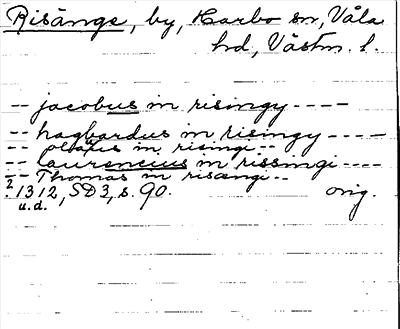 Risänge, by, Harbo sn, Våla
hd, Västm. l.
-- jacobus in risingy ----
-- hagbardus in risingy ----
-- olauus in risingi --
-- laurencius in rissingi ----
-- Thomas in risængi --
2 1312, SD 3, s. 90. orig.
u.d.